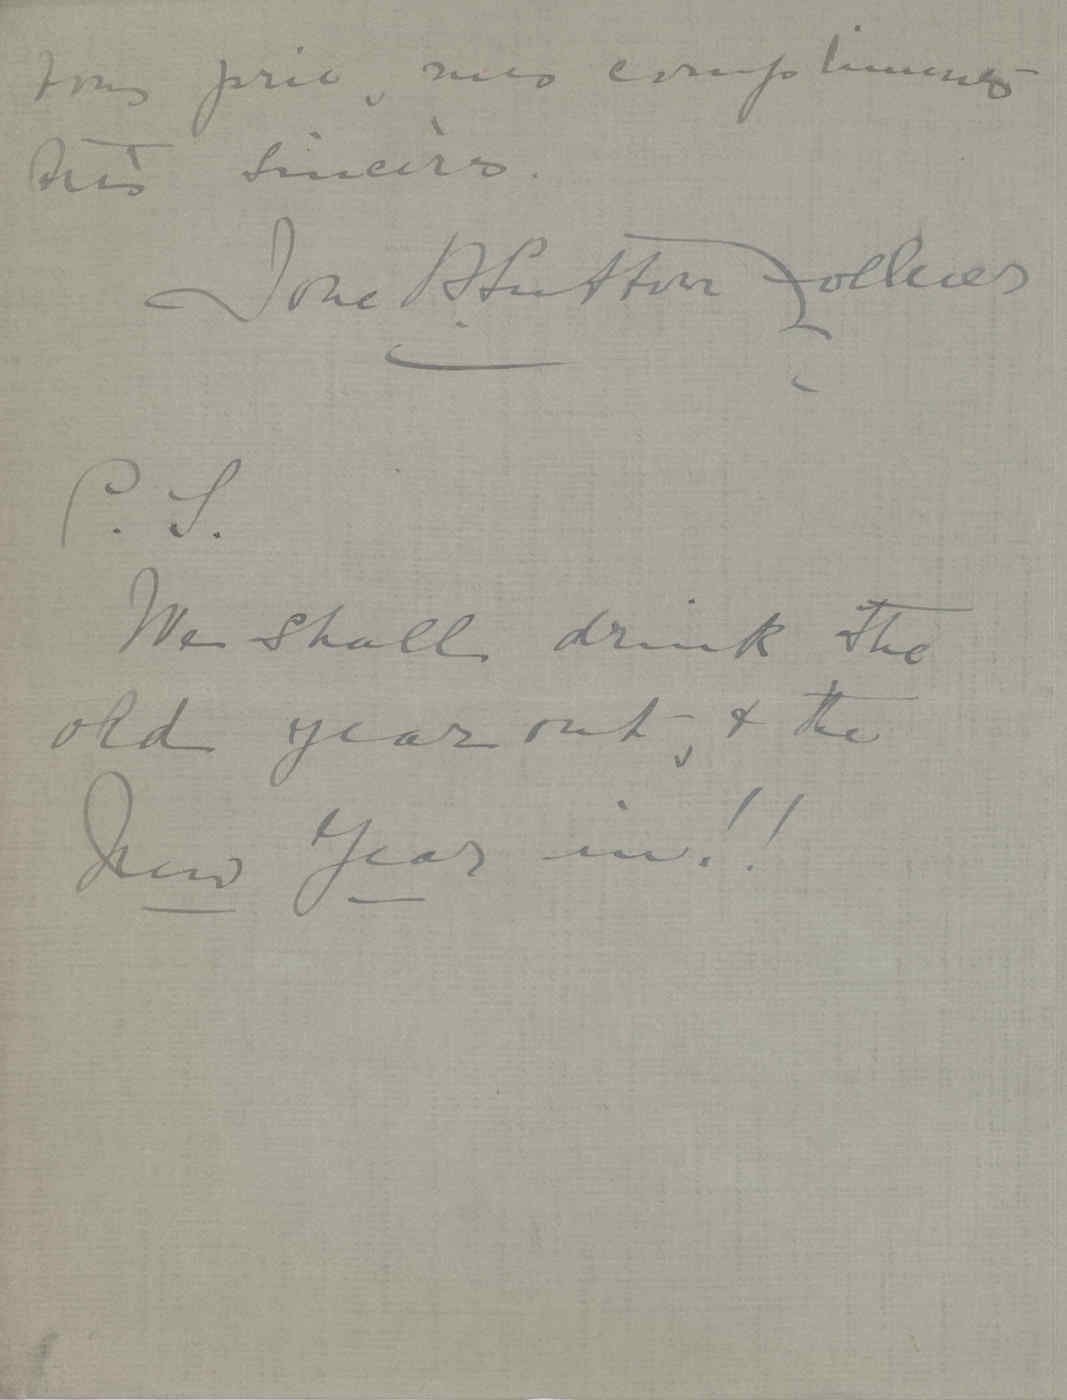 vous prie, mes compliments
très sincères.
Ione B Sutton Follmer
P. S.
We shall drink the
old year out, & the
New Year in!!